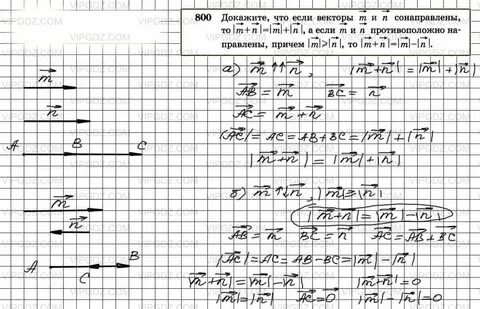 800 Докажите, что если векторы m⃗ и n⃗ сонаправлены,
то |m⃗ + n⃗|=|m⃗|+|n⃗|, а если m⃗ и n⃗ противоположно на-
правлены, причем |m⃗|⩾|n⃗|, то |m⃗ + n⃗|=|m⃗|−|n⃗|.
m⃗
n⃗
A B C
а) m⃗ ↑↑ n⃗, |m⃗+n⃗| = |m⃗| + |n⃗|
AB⃗ = m⃗ BC⃗ = n⃗
AC⃗ = m⃗ + n⃗
|AC⃗| = AC = AB + BC = |m⃗| + |n⃗|
|m⃗+n⃗| = |m⃗| + |n⃗|
m⃗
n⃗
A C B
б) m⃗ ↑↓ n⃗, |m⃗| ⩾ |n⃗|
|m⃗+n⃗| = |m⃗| − |n⃗|
AB⃗ = m⃗ BC⃗ = n⃗ AC⃗ = AB⃗ + BC⃗
|AC⃗| = AC = AB − BC = |m⃗| − |n⃗|
|m⃗+n⃗| = |m⃗| − |n⃗| |m⃗+n⃗| = 0
|m⃗| = |n⃗| AC⃗ = 0⃗ |m⃗| − |n⃗| = 0